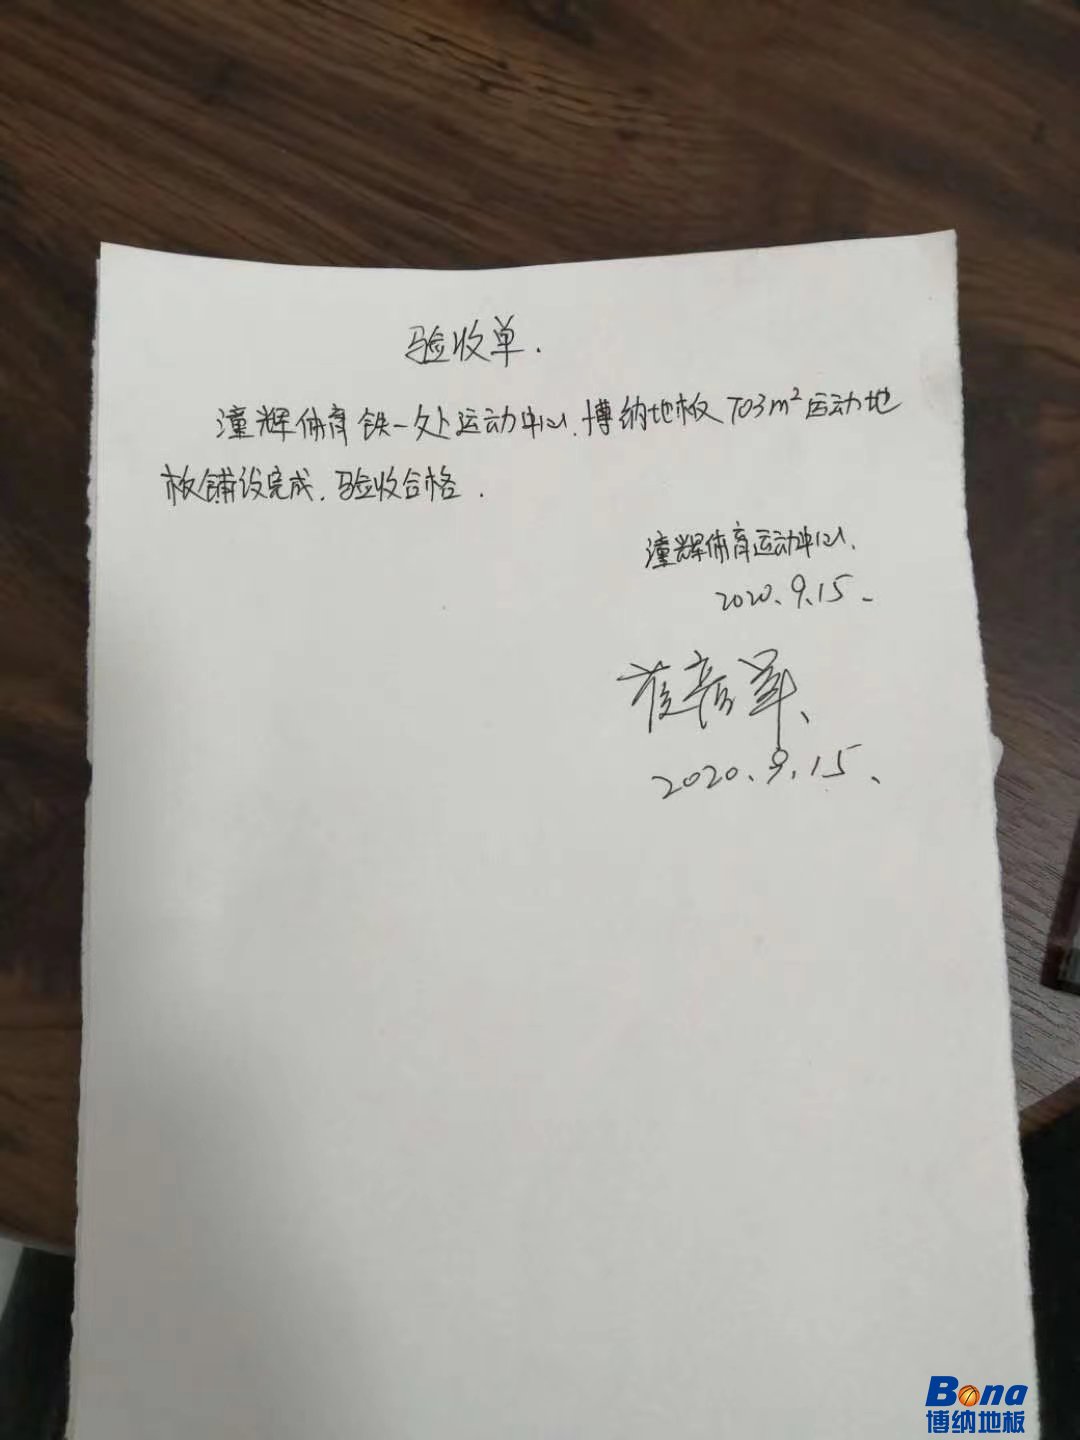 验收单.
潼辉体育铁一处运动中心.博纳地板703m²运动地
板铺设完成.验收合格.
潼辉体育运动中心.
2020.9.15
2020.9.15、
Bona
博纳地板